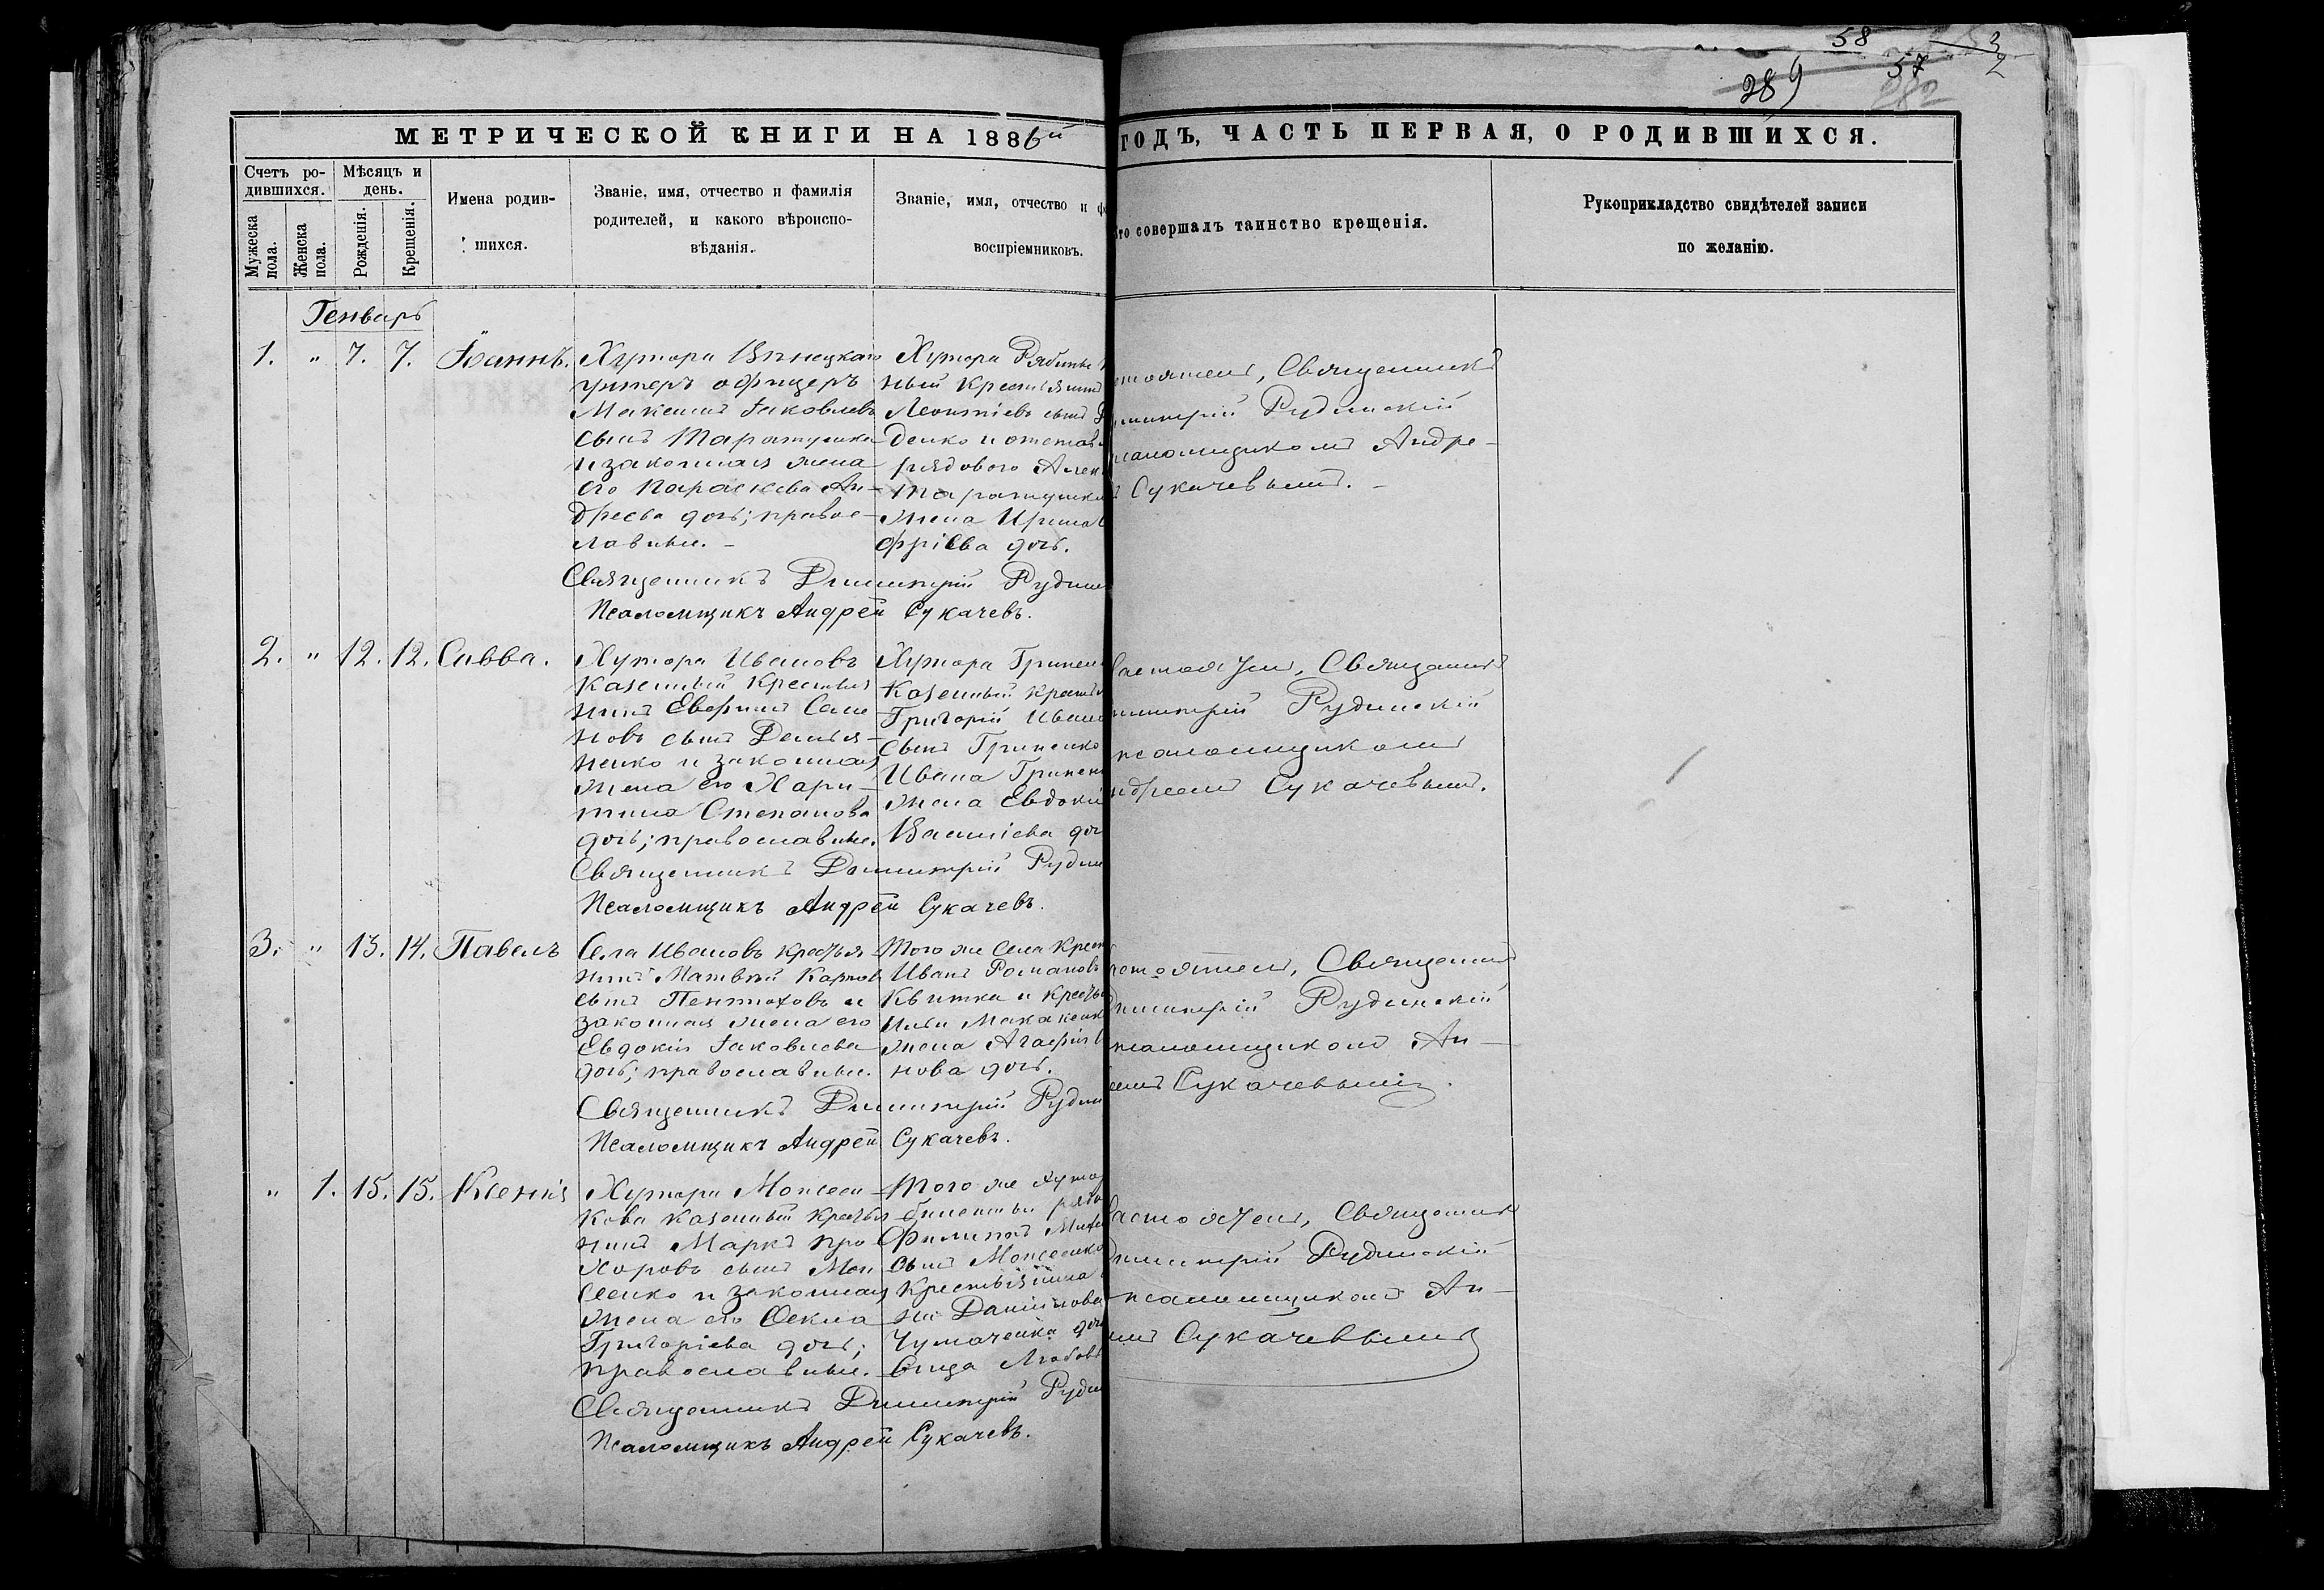 58 3
289 57 2
282
МЕТРИЧЕСКОЙ КНИГИ НА 1886й ГОДЪ, ЧАСТЬ ПЕРВАЯ, О РОДИВШИХСЯ.
Счетъ ро-
дившихся.
Мужеска пола.
Женска пола.
Мѣсяцъ и
день.
Рожденія.
Крещенія.
Имена родив-
шихся.
Званіе, имя, отчество и фамилія
родителей, и какого вѣроиспо-
вѣданія.
Званіе, имя, отчество и
воспріемниковъ.
то совершалъ таинство крещенія.
Рукоприкладство свидѣтелей записи
по желанію.
Генварь
1. " 7. 7. Іоаннъ.
Хутора
унтеръ офицеръ
Максимъ Іаковлевъ
сынъ Таратушка
и законная жена
его Параскева Ан-
дреева дочь; правос-
лавные. –
Хутора
ный крестьянинъ
Леонтіевъ сынъ
денко и отстав
рядового Алек
Таратушки
жена Ирина
фріева дочь.
Священникъ Димитрій Рудин
Псаломщикъ Андрей Сукачевъ.
стоятель, Священникъ
имитрій Рудинскій
саломщикомъ Андре-
Сукачевымъ. –
2. " 12. 12. Савва.
Хутора Ивановъ
казенный крестья
нинъ Евфимъ
новъ сынъ Демья-
ненко и законная
жена его Хари-
тина Степанова
дочь; православные.
Хутора Гринен
казенный кресть
Григорій Иван
сынъ Гриненко
Ивана Гринен
жена Евдокі
Василіева доч
Священникъ Димитрій Рудин
Псаломщикъ Андрей Сукачевъ.
астоятель, Священникъ
имитрій Рудинскій
псаломщикомъ
ндреемъ Сукачевымъ.
3. " 13. 14. Павелъ
Села Ивановъ крестья-
нинъ Матвѣй Карпов
сынъ Пентюховъ и
законная жена его
Евдокія Іаковлева
дочь; православные.
Того же села крест
Иванъ Романовъ
Квитка и крестья
Ильи Макаренк
жена Агафія
нова дочь.
Священникъ Димитрій Рудин
Псаломщикъ Андрей Сукачевъ.
стоятель, Священникъ
Димитрій Рудинскій
псаломщикомъ Ан-
еемъ Сукачевымъ.
" 1. 15. 15. Ксенія
Хутора Моисеен-
кова казенный крестья
нинъ Маркъ Про-
хоровъ сынъ Мои
сеенко и законная
жена его Ѳекла
Григоріева дочь;
православные.
Того же хутор
рядо
Филиппъ
сынъ Моисеенко
крестьянина
на Даниилова
Чумаченка доч
вица Любовь
Священникъ Димитрій Рудин
Псаломщикъ Андрей Сукачевъ.
астоятель, Священникъ
Димитрій Рудинскій
псаломщикомъ Ан-
емъ Сукачевымъ